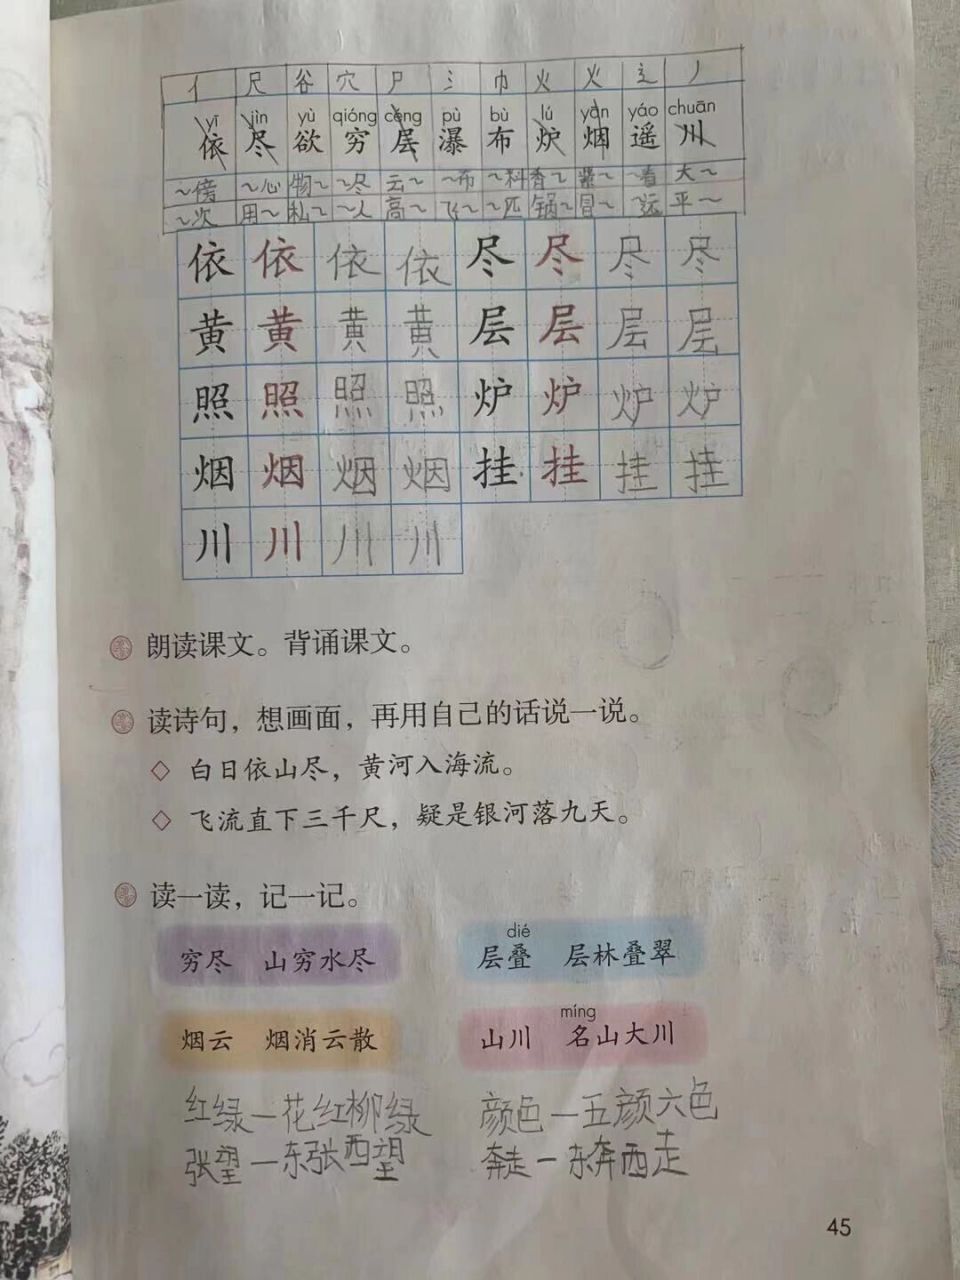 亻 尺 谷 穴 尸 氵 巾 火 火 辶 丿
yī jìn yù qióng céng pù bù lú yān yáo chuān
依 尽 欲 穷 层 瀑 布 炉 烟 遥 川
～傍 ～心 物～ ～尽 云～ ～布 ～料 香～ 紫～ ～看 大～
～次 用～ 私～ ～人 高～ 飞～ ～匹 锅～ 冒～ ～远 平～
依 依 依 依 尽 尽 尽 尽
黄 黄 黄 黄 层 层 层 层
照 照 照 照 炉 炉 炉 炉
烟 烟 烟 烟 挂 挂 挂 挂
川 川 川 川
朗读课文。背诵课文。
读诗句，想画面，再用自己的话说一说。
◇ 白日依山尽，黄河入海流。
◇ 飞流直下三千尺，疑是银河落九天。
读一读，记一记。
dié
穷尽 山穷水尽 层叠 层林叠翠
míng
烟云 烟消云散 山川 名山大川
红绿—花红柳绿 颜色—五颜六色
张望—东张西望 奔走—东奔西走
45